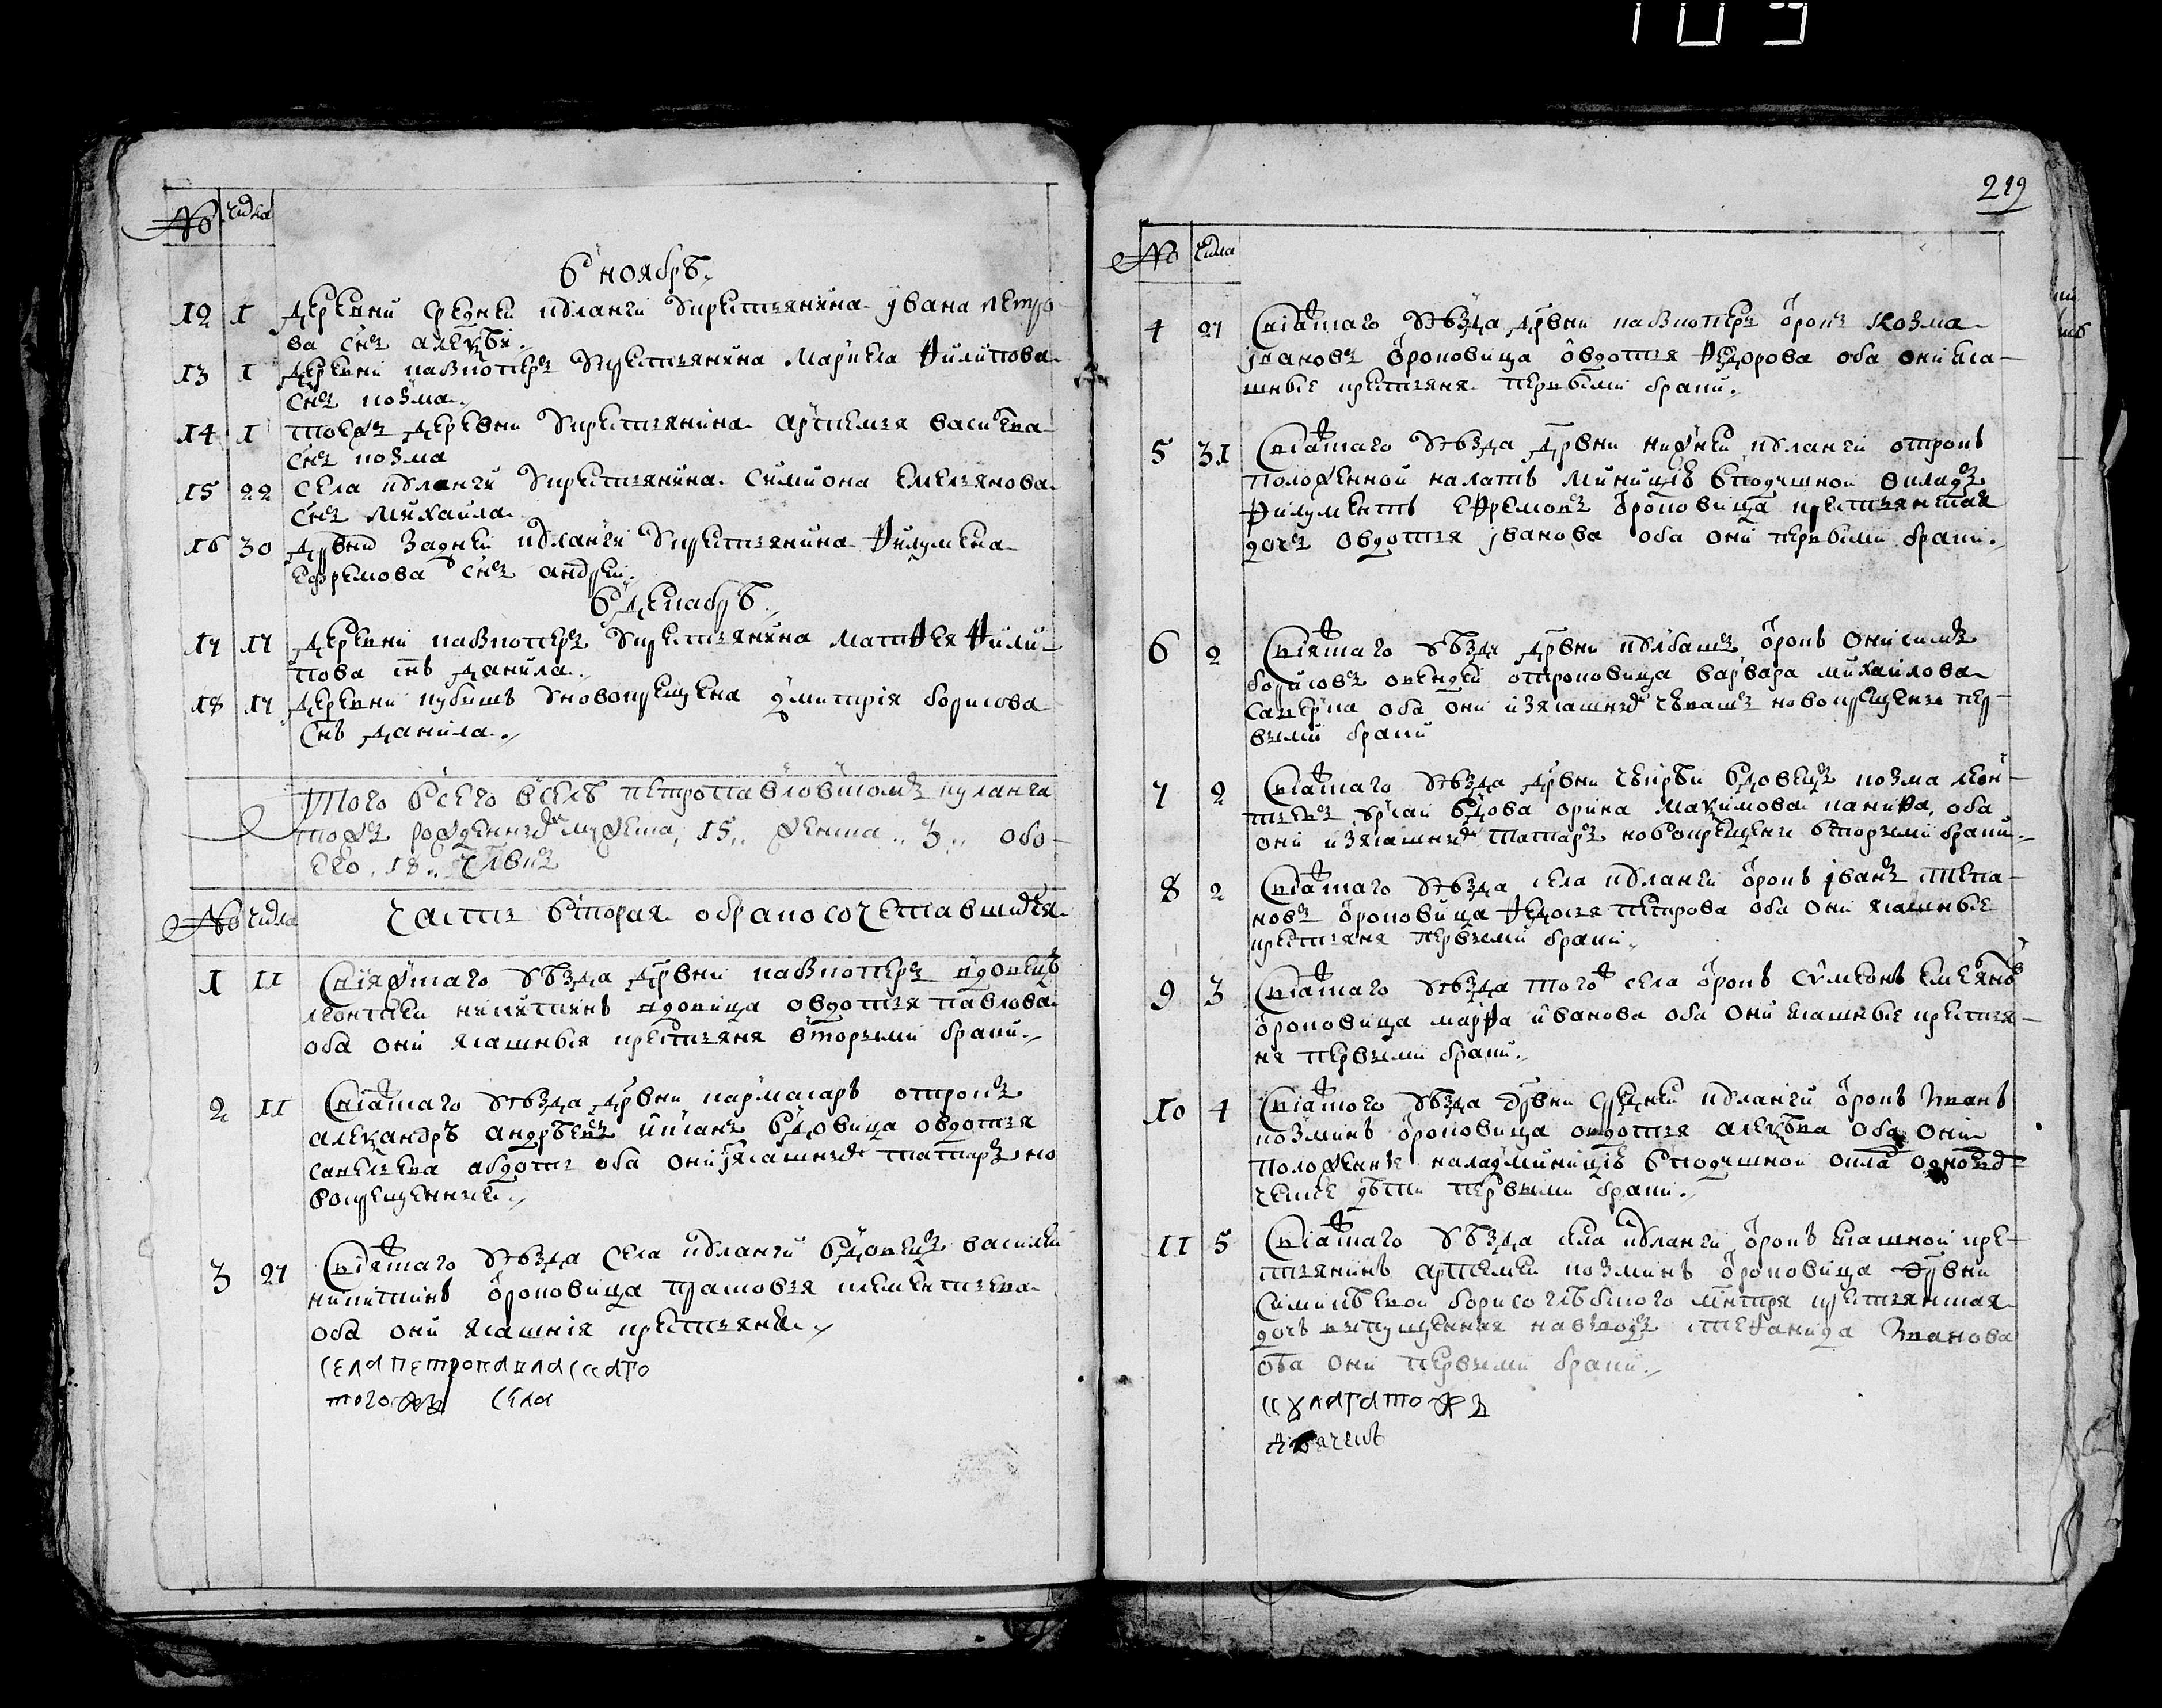 109
№ числа
В ноябрѣ.
12 1 деревни средней кулангй укрестьянина ївана петро
ва снъ алеѯѣй.
13 1 деревни кавзкоперъ укрестьянина маркела филипова
снъ козма.
14 1 тоежъ деревни укрестьянина артемья василева
снъ козма
15 22 села куланги укрестьянина симиона емельянова
снъ михаила.
16 30 дрвни задней куланги укрестьянина филумена
ефремова снъ андрей.
В декабрѣ.
17 17 деревни кавзкоперъ укрестьянина матфея фили-
пова снъ данила.
18 17 деревни кубышъ уновокрещена дмитрия борисова
снъ данила.
Того всего вселѣ петропавловскомъ куланга
тожъ рожденныхъ мужеска, 15,, женска ,, 3 ,, обо-
его. 18,, члвкъ
№ числа часть вторая обракосочетавшихся
1 11 свияжскаго уѣзда дрвни кавзкоперъ вдовецъ
леонтей никитинъ вдовица овдотья павлова
оба они ясашныя крестьяня вторымъ браки.
2 11 свияскаго уѣзда дрвни отрокъ
алеѯандръ андрѣевъ вдовица овдотья
оба они ясашныхъ татаръ но
вокрещенныхъ.
3 27 свияскаго уѣзда села куланги вдовецъ василей
никитинъ отроковица
оба они ясашния крестьяня.
села петропавласкаго
тогожъ села
219
№ числа
4 27 свияскаго уѣзда дрвни кавзкоперъ отрокъ козма
ївановъ отроковица овдотья федорова оба они яса-
шные крестьяня первымъ браки.
5 31 свияскаго уѣзда дрвни нижней куланги отрокъ
положенной вподушной окладъ
филументъ ефремовъ отроковица крестьянская
дочъ овдотья їванова оба они первыми браки.
6 2 свияскаго уѣзда дрвни отрокъ онисимъ
борисовъ отроковица варвара михайлова
оба они изясашныхъ чювашъ новокрещены пер-
выми браки
7 2 свияскаго уѣзда дрвни вдовецъ козма леон-
тьевъ вдова орина маѯимова оба
они изясашныхъ татаръ новокрещены вторыми браки.
8 2 свияскаго уѣзда села куланги отрокъ їванъ степа-
новъ отроковица федосья петрова оба они ясашные
крестьяня первыми браки.
9 3 свияскаго уѣзда тогож села отрокъ сумеонъ емеяновъ
отроковица марфа иванова оба они ясашные крестья-
ня первыми браки.
10 4 свияского уѣзда дрвни средней куланги отрокъ иванъ
козминъ отроковица овдотья алеѯѣва оба они
вподушной оклад
дѣти первыми браки.
11 5 свияскаго уѣзда села куланги отрокъ ясашной кре-
стьянинъ артемей козминъ отроковица дрвни
борисоглѣбского мнстря крестьянская
дочь выпущенная навыводъ стефанида иванова
оба они первыми браки.
скулагатожъ